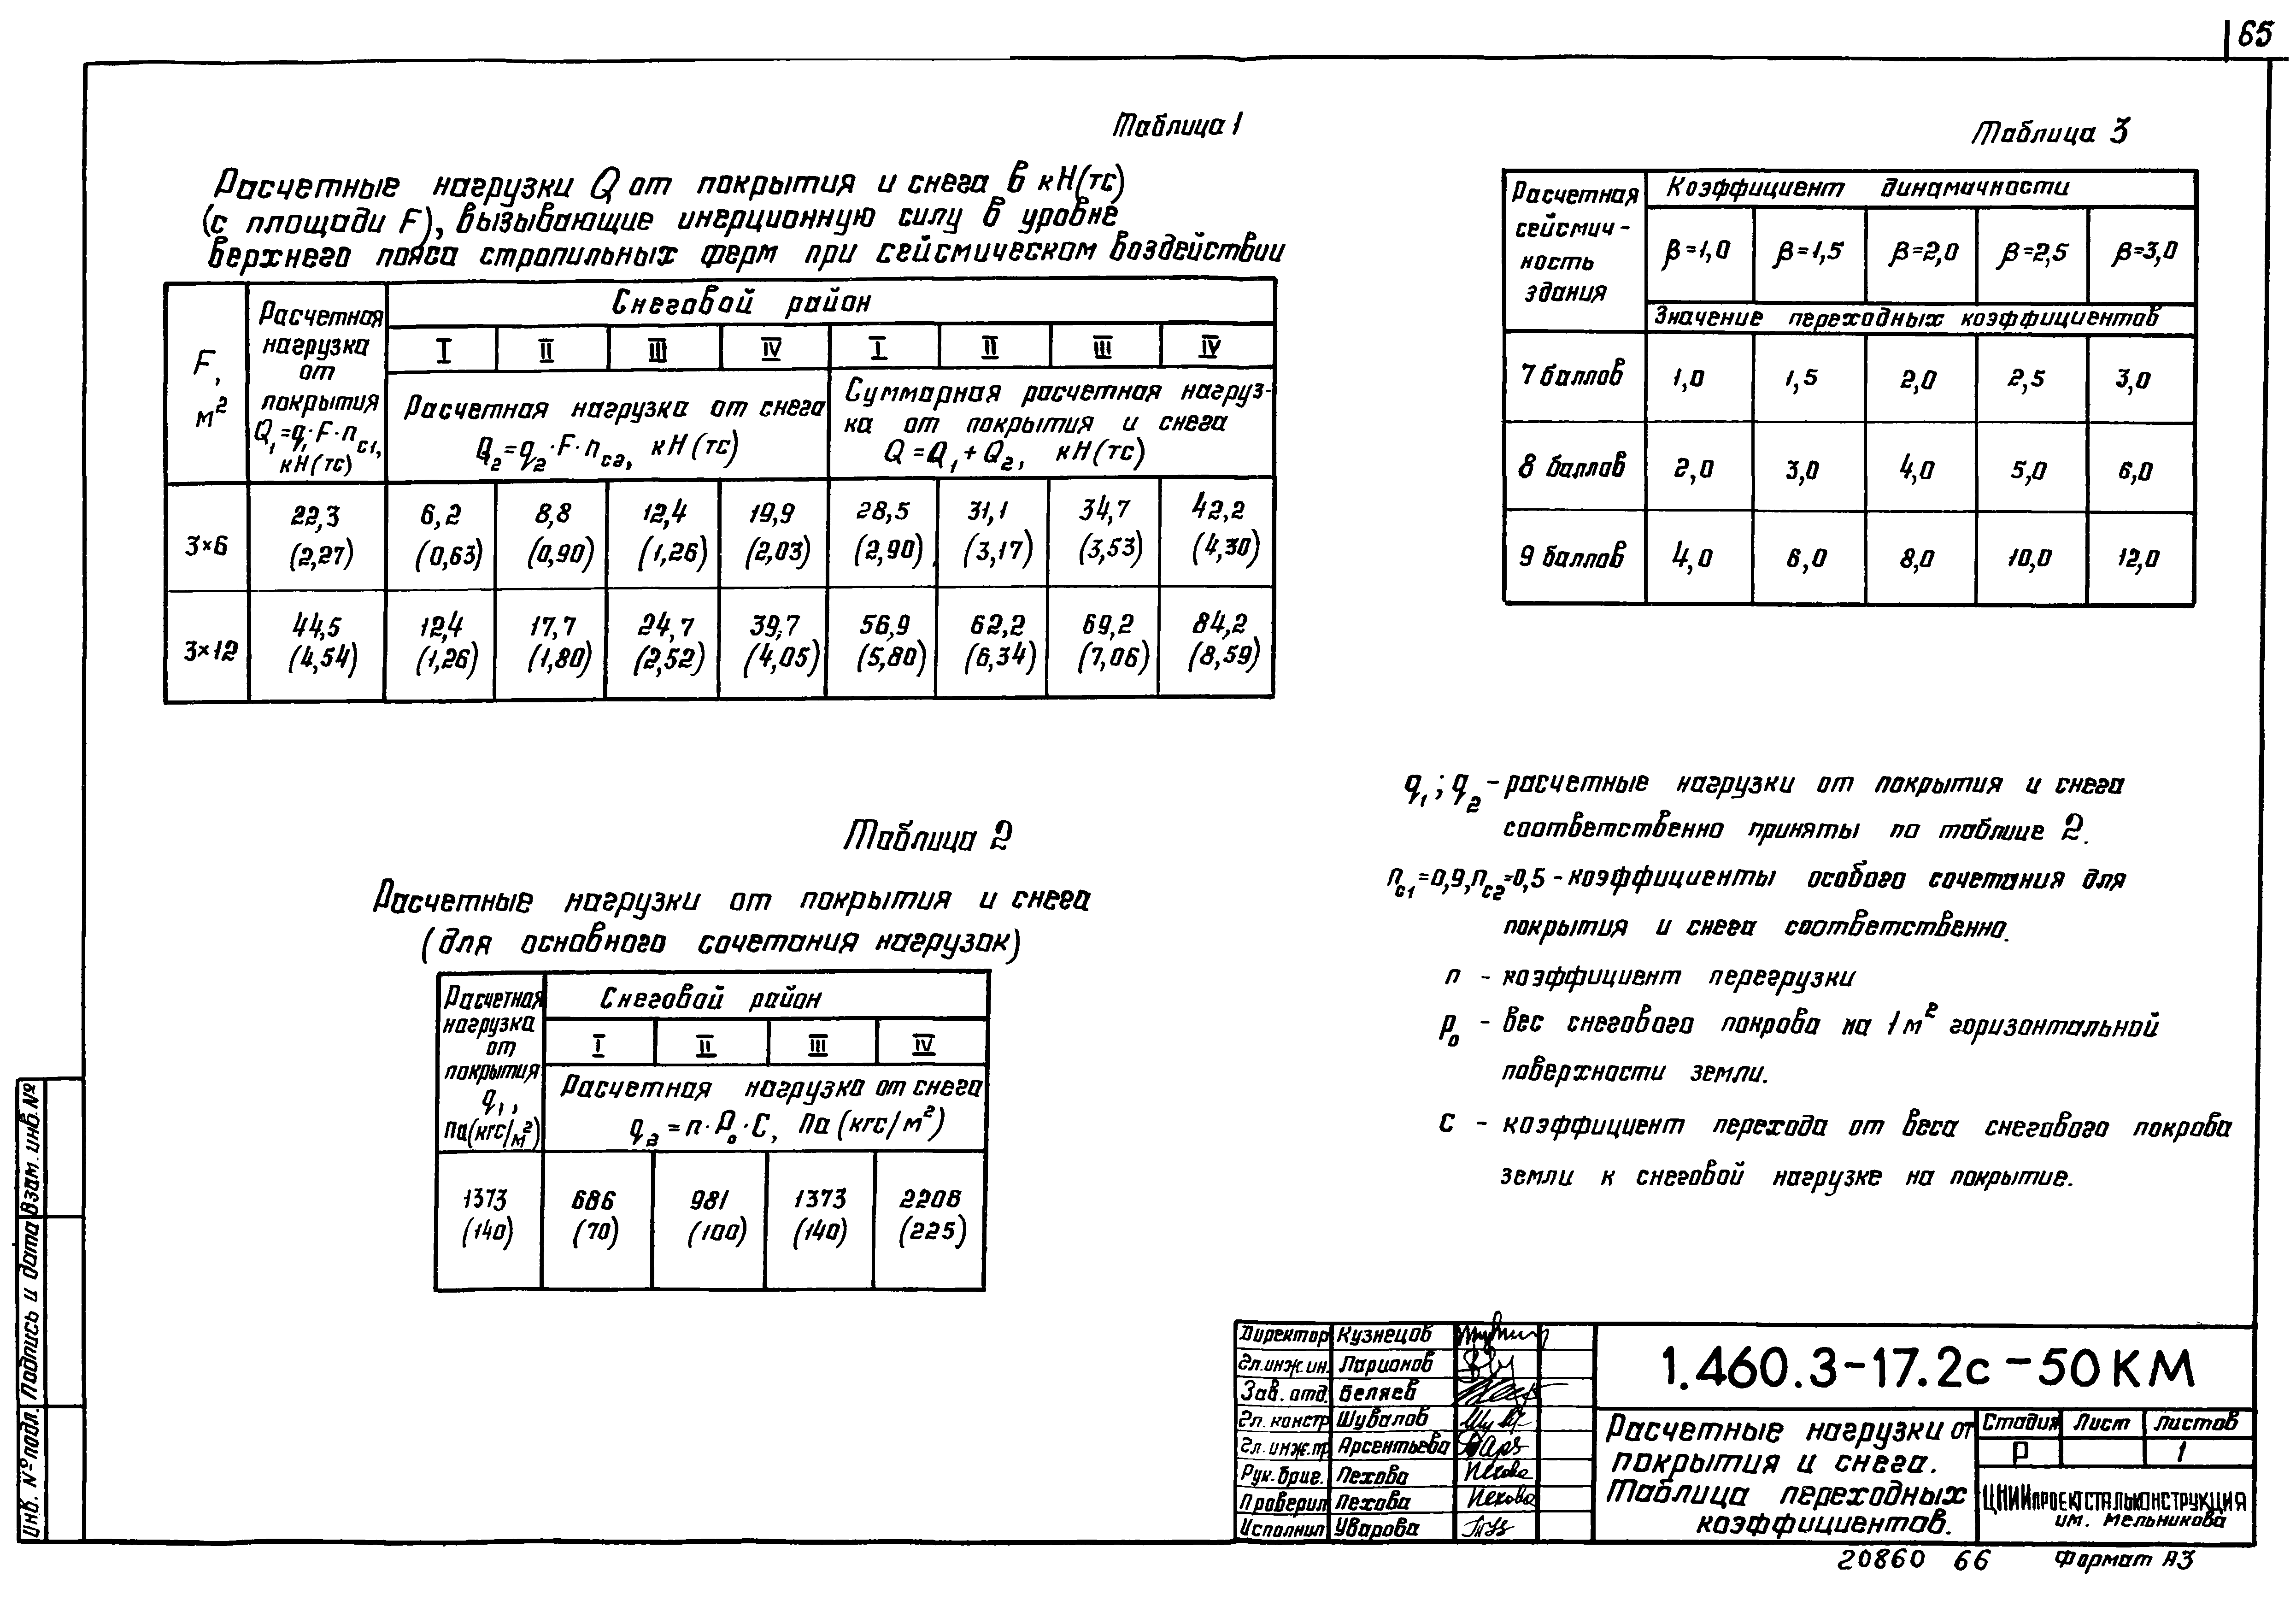 65
Таблица 1
Расчетные нагрузки Q от покрытия и снега в кН(тс)
(с площади F), вызывающие инерционную силу в уровне
верхнего пояса стропильных ферм при сейсмическом воздействии
F, м²
Расчетная нагрузка от покрытия Q₁=q₁·F·nс1, кН(тс)
Снеговой район
I II III IV I II III IV
Расчетная нагрузка от снега
Q₂=q₂·F·nс2, кН(тс)
Суммарная расчетная нагруз-
ка от покрытия и снега
Q=Q₁+Q₂, кН(тс)
3×6 22,3 6,2 8,8 12,4 19,9 28,5 31,1 34,7 42,2
(2,27) (0,63) (0,90) (1,26) (2,03) (2,90) (3,17) (3,53) (4,30)
3×12 44,5 12,4 17,7 24,7 39,7 56,9 62,2 69,2 84,2
(4,54) (1,26) (1,80) (2,52) (4,05) (5,80) (6,34) (7,06) (8,59)
Таблица 2
Расчетные нагрузки от покрытия и снега
(для основного сочетания нагрузок)
Расчетная
нагрузка
от
покрытия
q₁,
Па(кгс/м²)
Снеговой район
I II III IV
Расчетная нагрузка от снега
q₂=n·P₀·C, Па(кгс/м²)
1373 686 981 1373 2206
(140) (70) (100) (140) (225)
Таблица 3
Расчетная
сейсмич-
ность
здания
Коэффициент динамичности
β=1,0 β=1,5 β=2,0 β=2,5 β=3,0
Значение переходных коэффициентов
7 баллов 1,0 1,5 2,0 2,5 3,0
8 баллов 2,0 3,0 4,0 5,0 6,0
9 баллов 4,0 6,0 8,0 10,0 12,0
q₁; q₂ - расчетные нагрузки от покрытия и снега
соответственно приняты по таблице 2.
nс1=0,9, nс2=0,5 - коэффициенты особого сочетания для
покрытия и снега соответственно.
n - коэффициент перегрузки
P₀ - вес снегового покрова на 1м² горизонтальной
поверхности земли.
С - коэффициент перехода от веса снегового покрова
земли к снеговой нагрузке на покрытие.
Директор Кузнецов
Гл.инж.ин. Ларионов
Зав. отд. Беляев
Гл. констр Шувалов
Гл. инж.пр Арсентьева
Рук.бриг. Пехова
Проверил Пехова
Исполнил Уварова
1.460.3-17.2с-50КМ
Расчетные нагрузки от
покрытия и снега.
Таблица переходных
коэффициентов.
Стадия Лист Листов
Р 1
ЦНИИПРОЕКТСТАЛЬКОНСТРУКЦИЯ
им. Мельникова
20860 66 Формат А3
Инв. № подл. Подпись и дата Взам. инв. №